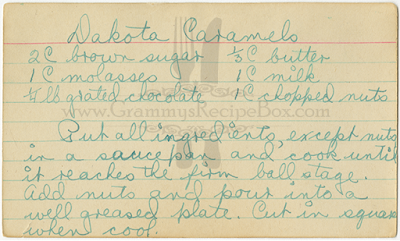 Dakota Caramels
2C brown sugar ⅓C butter
1C molasses 1C milk
¼lb grated chocolate 1C chopped nuts
www.GrammysRecipeBox.com
Put all ingredients, except nuts
in a sauce pan and cook until
it reaches the firm ball stage.
Add nuts and pour into a
well greased plate. Cut in squares
when cool.